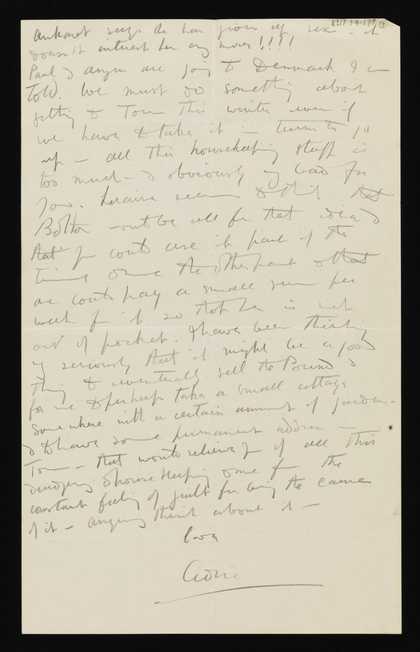 says she has given up sex. it
doesn't interest her any more!!!!
Paul & are going to Denmark I am
told. We must do something about
getting to Town this winter even if
we have to take it in turns to
up – all this housekeeping stuff is
too much – & obviously bad for
you. seems to think that
Bolton – would be all for that idea &
that you could use it part of the
time & the other part & that
we could pay a small sum per
week for it so that he is not
out of pocket. I have been thinking
seriously that it might be a good
thing to eventually sell the Pound &
for me to perhaps take a small cottage
somewhere with a certain amount of garden –
& to have some permanent address in
Town – that would relieve you of all this
drudgery of housekeeping & the
constant feeling of guilt for being the cause
of it – anyway think about it –
Love